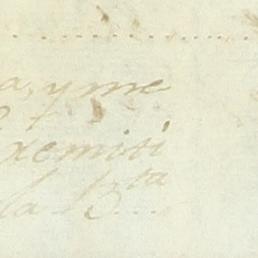 a, y me
xemiti
la B.ta